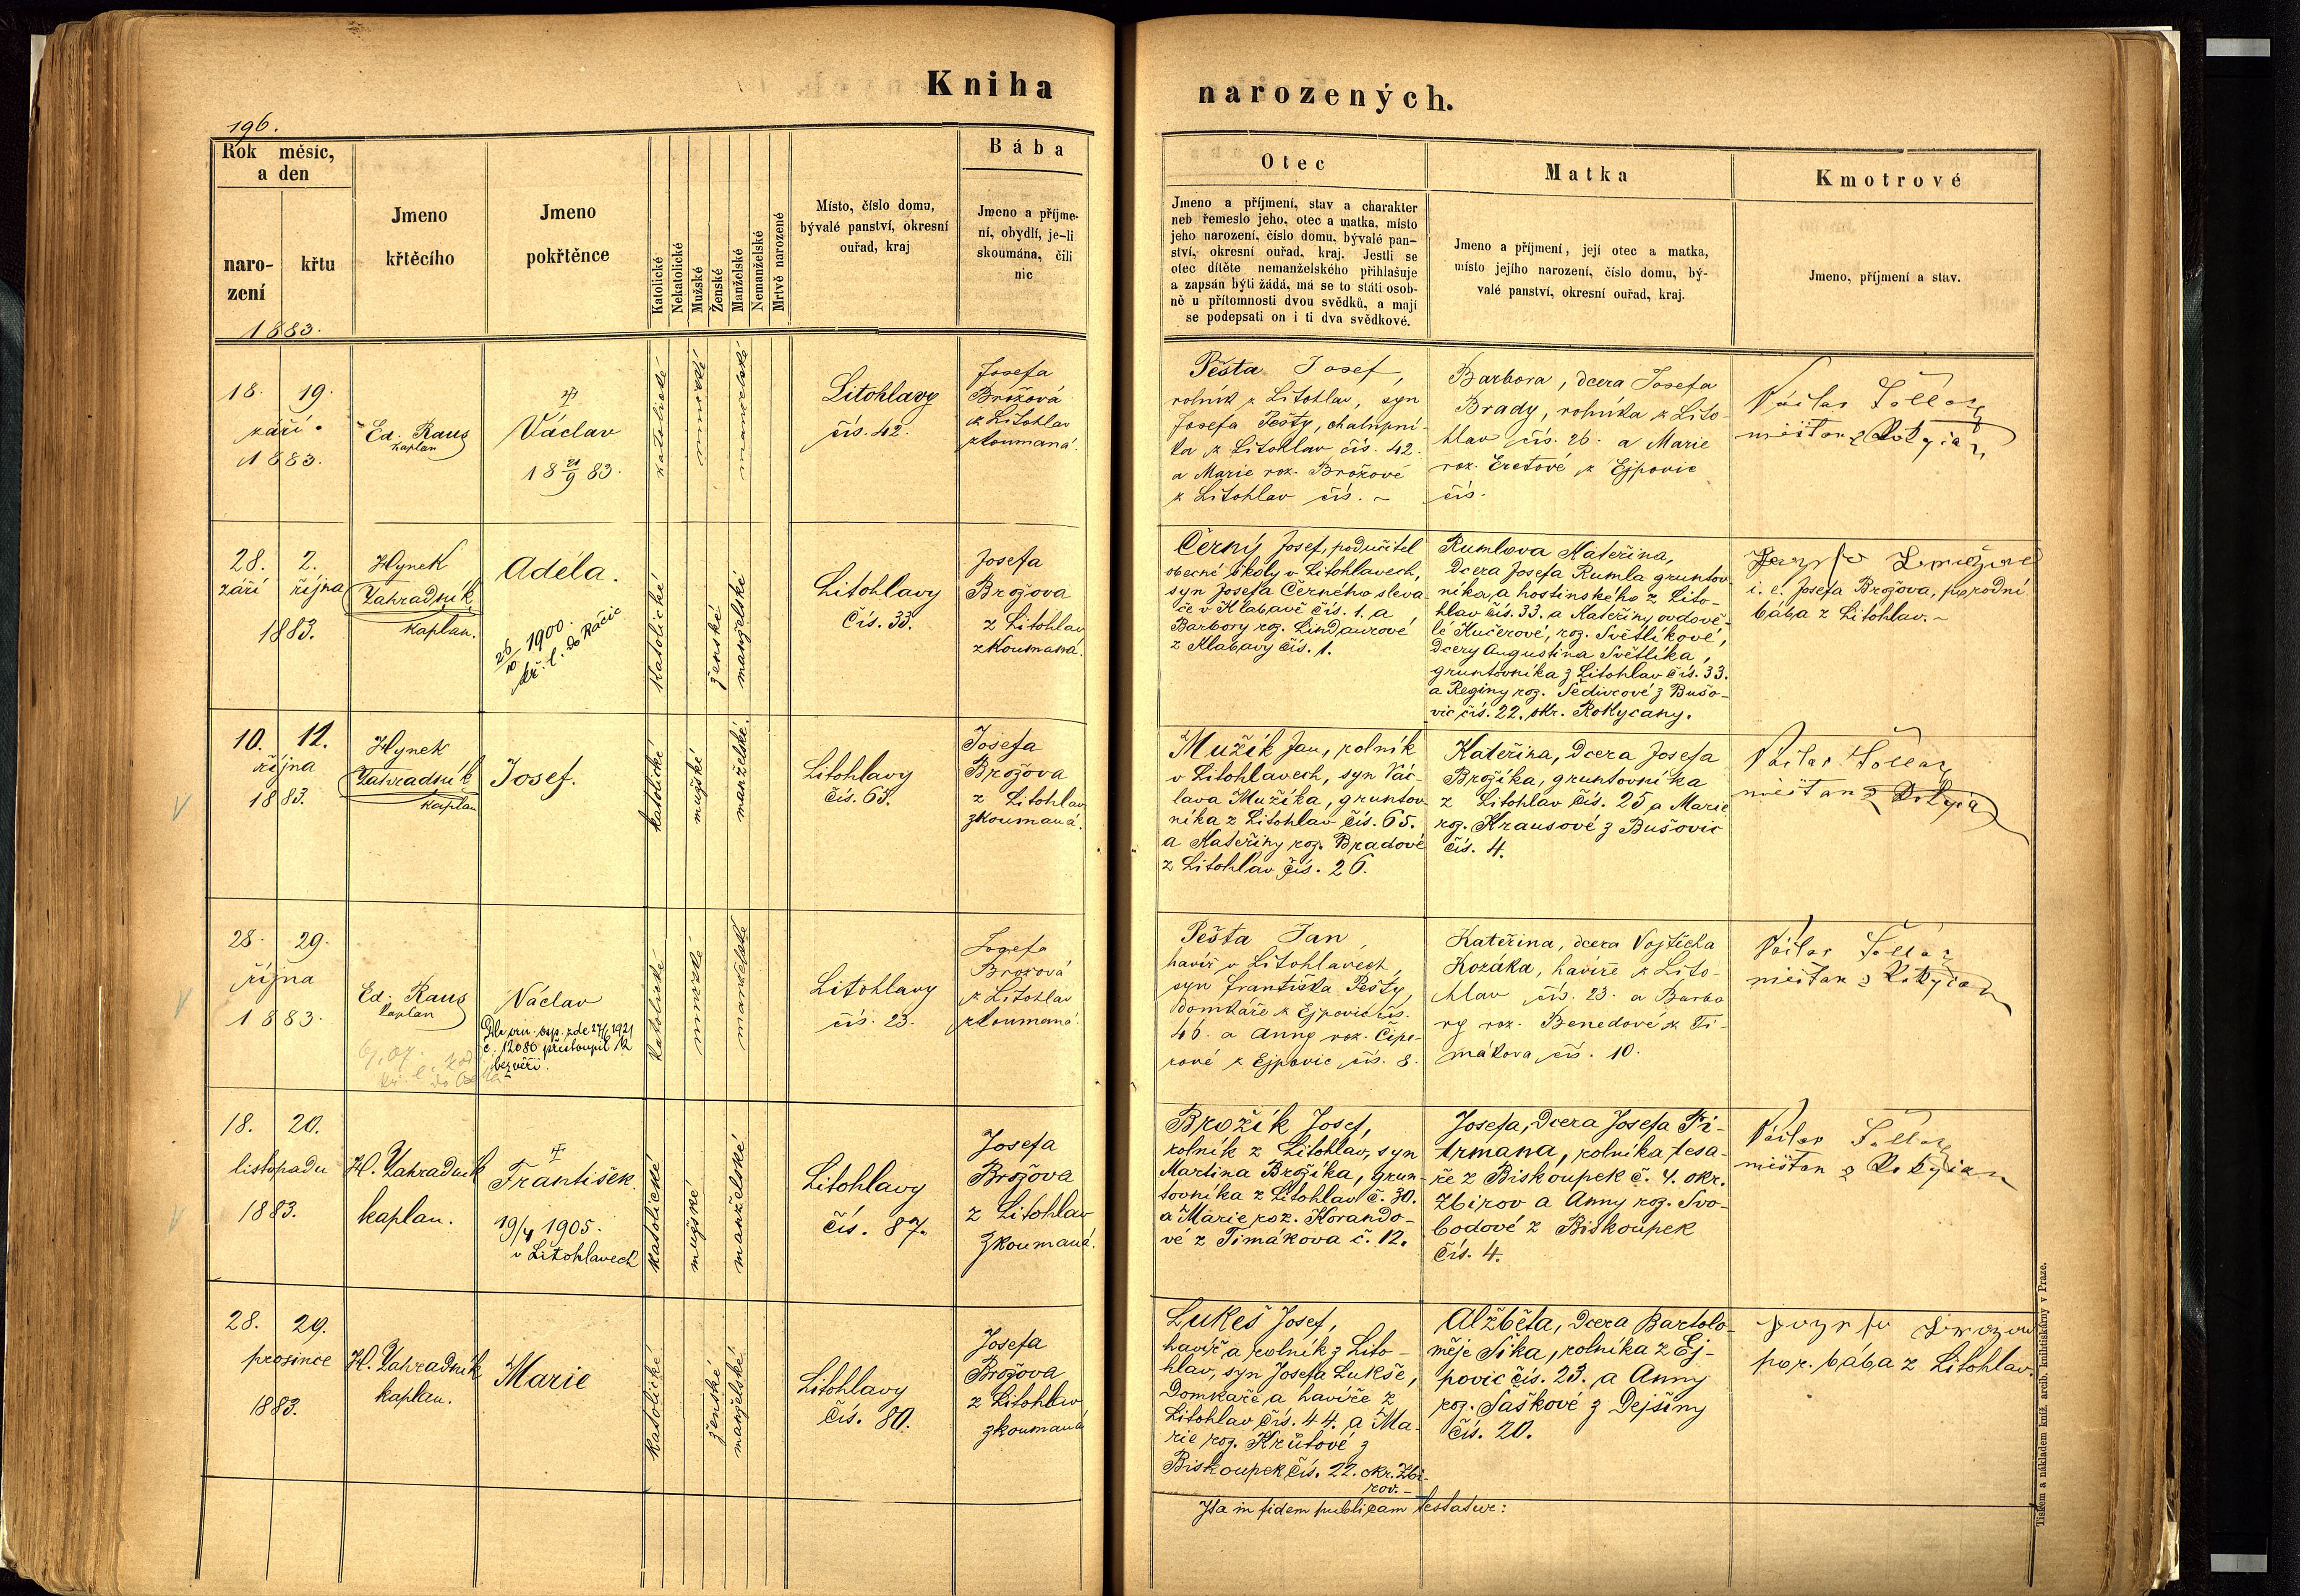 Kniha narozených.
196.
Rok měsíc,
a den
naro-
zení
křtu
1883.
Jmeno
křtěcího
Jmeno
pokřtěnce
Katolické
Nekatolické
Mužské
Ženské
Manželské
Nemanželské
Mrtvě narozené
Místo, číslo domu,
bývalé panství, okresní
ouřad, kraj
Bába
Jmeno a příjme-
ní, obydlí, je-li
skoumána, čili
nic
Otec
Jmeno a příjmení, stav a charakter
neb řemeslo jeho, otec a matka, místo
jeho narození, číslo domu, bývalé pan-
ství, okresní ouřad, kraj. Jestli se
otec dítěte nemanželského přihlašuje
a zapsán býti žádá, má se to státi osob-
ně u přítomnosti dvou svědků, a mají
se podepsati on i ti dva svědkové.
Matka
Jmeno a příjmení, její otec a matka,
místo jejího narození, číslo domu, bý-
valé panství, okresní ouřad, kraj.
Kmotrové
Jmeno, příjmení a stav.
18. 19.
září
1883.
Ed. Raus
kaplan
Václav
18 21/9 83.
katolické
mužské
manželské
Litohlavy
čís. 42.
Josefa
Brožová
z Litohlav
zkoumaná.
Pěšta Josef,
rolník z Litohlav, syn
Josefa Pešty, chalupní-
ka z Litohlav čís. 42.
a Marie roz. Brožové
z Litohlav čís. ~
Barbora, dcera Josefa
Brady, rolníka z Lito-
hlav čís. 26. a Marie
roz. Eretové z Ejpovic
čís.
Václav
měštan z
28. 2.
září října
1883.
Hynek
Zahradník
kaplan.
Adéla.
26/10 1900.
kř. l. do Ráčic
katolické
ženské
manželské
Litohlavy
Čís. 33.
Josefa
Brožova
z Litohlav
zkoumaná.
Černý Josef, podučitel
obecné školy v Litohlavech,
syn Josefa Černého sleva-
če v Klabavě čís. 1. a
Barbory roz. Lindaurové
z Klabavy čís. 1.
Rumlova Kateřina,
dcera Josefa Rumla gruntov-
níka, a hostinského z Lito-
hlav čís. 33. a Kateřiny ovdově-
lé Kučerové, roz. Světlíkové,
dcery Augustina Světlíka,
gruntovníka z Litohlav čís. 33.
a Reginy roz. Šedivcové z Bušo-
vic čís. 22. okr. Rokycany.
i. e. Josefa Brožova, porodní
bába z Litohlav. ~
10. 12.
října
1883.
Hynek
Zahradník
kaplan
Josef.
katolické
mužské
manželské.
Litohlavy
čís. 65.
Josefa
Brožova
z Litohlav
zkoumaná.
Mužík Jan, rolník
v Litohlavech, syn Vác-
lava Mužíka, gruntov-
níka z Litohlav čís. 65.
a Kateřiny roz. Bradové
z Litohlav čís. 26.
Kateřina, dcera Josefa
Brožíka, gruntovníka
z Litohlav čís. 25 a Marie
roz. Krausové z Bušovic
čís. 4.
Václav
měštan z
28. 29.
října
1883.
Ed. Raus
kaplan
Václav
č. 12086 přistoupil k
bezvěří.
katolické
mužské
manželské
Litohlavy
čís. 23.
Josefa
Brožová
z Litohlav
zkoumaná
Pěšta Jan,
havíř v Litohlavech,
syn Františka Pešty,
domkáře z Ejpovic čís.
46. a Anny roz. Čipe-
rové z Ejpovic čís. 8.
Kateřina, dcera Vojtěcha
Kozáka, havíře z Lito-
hlav čís. 23. a Barbo
ry roz. Benedové z Ti-
mákova čís. 10.
Václav
měštan z
18. 20.
listopadu
1883.
H. Zahradník
kaplan.
František.
19/4 1905.
v Litohlavech
katolické
mužské
manželské
Litohlavy
čís. 87.
Josefa
Brožova
z Litohlav
zkoumaná.
Brožík Josef,
rolník z Litohlav, syn
Martina Brožíka, grun-
tovníka z Litohlav č. 30.
a Marie roz. Korando-
vé z Timákova č. 12.
Josefa, dcera Josefa Fi-
trmana, rolníka, tesa-
ře z Biskoupek č. 4. okr.
Zbirov a Anny roz. Svo-
bodové z Biskoupek
čís. 4.
Václav
měštan z
28. 29.
prosince
1883.
H. Zahradník
kaplan.
Marie
katolické
ženské
manželské
Litohlavy
čís. 80.
Josefa
Brožova
z Litohlav
zkoumaná
Lukeš Josef,
havíř a rolník z Lito-
hlav, syn Josefa Lukše,
domkaře a havíře z
Litohlav čís. 44. a Ma-
rie roz. Krůtové z
Biskoupek čís. 22. okr. Zbi-
rov. -
Alžběta, dcera Bartolo-
měje Šika, rolníka z Ej-
povic čís. 23. a Anny
roz. Šaškové z Dejšiny
čís. 20.
por. bába z Litohlav.
Ita in fidem publicam testatur:
Tiskem a nákladem kníž. arcib. knihtiskárny v Praze.